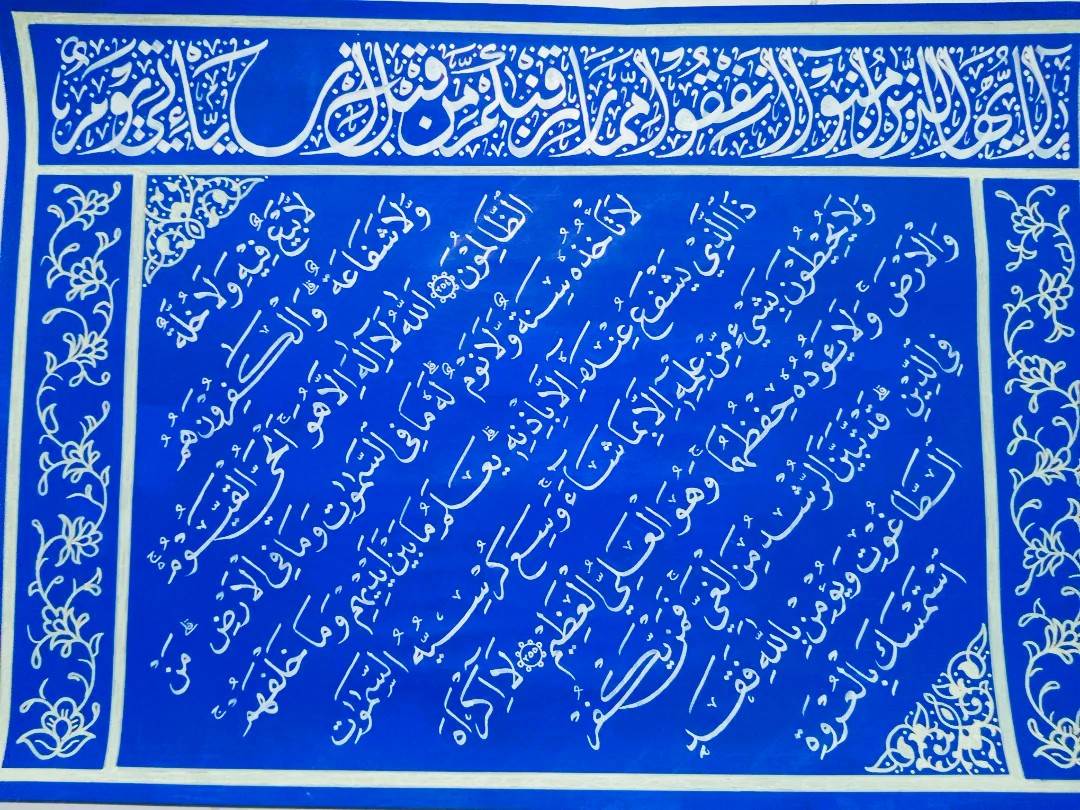 يٰٓاَيُّهَا الَّذِيْنَ اٰمَنُوْٓا اَنْفِقُوْا مِمَّا رَزَقْنٰكُمْ مِّنْ قَبْلِ اَنْ يَّاْتِيَ يَوْمٌ
لَّا بَيْعٌ فِيْهِ وَلَا خُلَّةٌ
وَّلَا شَفَاعَةٌ ؕ وَالْكٰفِرُوْنَ هُمُ
الظّٰلِمُوْنَ ﴿۲۵۴﴾ اَللّٰهُ لَآ اِلٰهَ اِلَّا هُوَ ۚ اَلْحَيُّ الْقَيُّوْمُ ۚ
لَا تَاْخُذُهٗ سِنَةٌ وَّلَا نَوْمٌ ؕ لَهٗ مَا فِي السَّمٰوٰتِ وَمَا فِي الْاَرْضِ ؕ مَنْ
ذَا الَّذِيْ يَشْفَعُ عِنْدَهٗٓ اِلَّا بِاِذْنِهٖ ؕ يَعْلَمُ مَا بَيْنَ اَيْدِيْهِمْ وَمَا خَلْفَهُمْ ۚ
وَلَا يُحِيْطُوْنَ بِشَيْءٍ مِّنْ عِلْمِهٖٓ اِلَّا بِمَا شَآءَ ۚ وَسِعَ كُرْسِيُّهُ السَّمٰوٰتِ
وَالْاَرْضَ ۚ وَلَا يَـُٔوْدُهٗ حِفْظُهُمَا ۚ وَهُوَ الْعَلِيُّ الْعَظِيْمُ ﴿۲۵۵﴾ لَآ اِكْرَاهَ
فِي الدِّيْنِ ؕ قَدْ تَّبَيَّنَ الرُّشْدُ مِنَ الْغَيِّ ۚ فَمَنْ يَّكْفُرْ
الطَّاغُوْتِ وَيُؤْمِنْۢ بِاللّٰهِ فَقَدِ
اسْتَمْسَكَ بِالْعُرْوَةِ